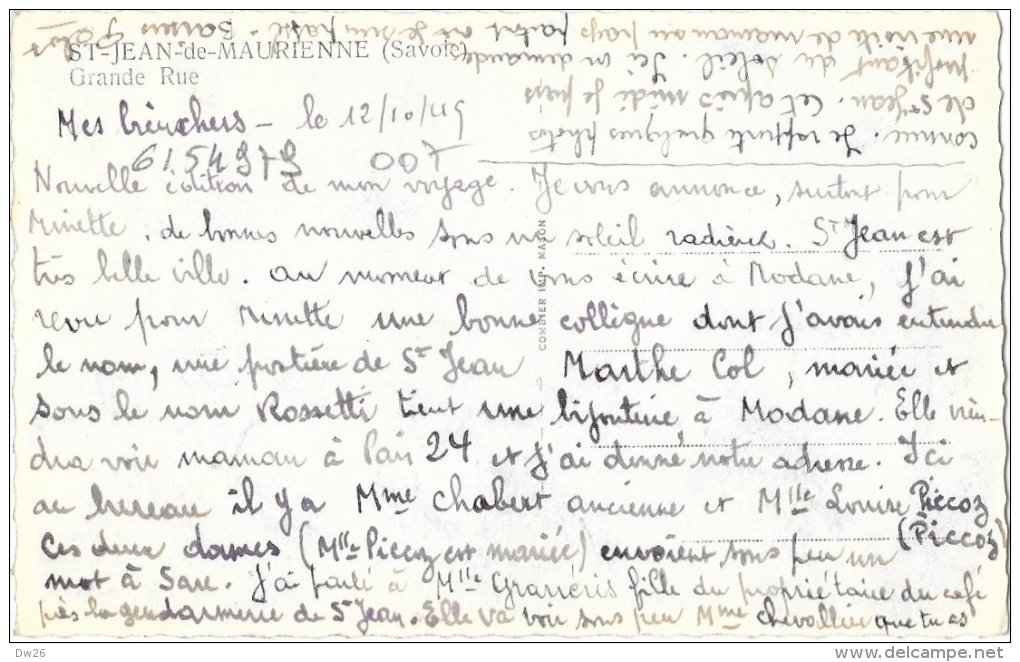 ST-JEAN-de-MAURIENNE (Savoie)
Grande Rue
Mes biens chers - le 12/10/49
6154979 007
Nouvelle édition de mon voyage. Je vous annonce, surtout pour
Minette, de bonnes nouvelles sous un soleil radieux. St Jean est
très belle ville. au moment de vous écrire à Modane, j'ai
revu pour Minette une bonne collègue dont j'avais entendu
le nom, une postière de St Jean Marthe Col, mariée et
sous le nom Rossetti tient une bijouterie à Modane. Elle vien-
dra voir maman à Paris 24 et j'ai donné notre adresse. Ici
au bureau il y a Mme Chabert ancienne et Mlle Louise Piccoz
(Piccoz)
Ces deux dames (Mlle Piccoz est mariée) envoient sous peu un
mot à Sare. J'ai parlé à Mlle fille du propriétaire du café
près la gendarmerie de St Jean. Elle va voir sous peu Mme Chevallier que tu as
connue. Je rapporte quelques photos
de St Jean. Cet après midi je puis
profitant du soleil. Ici on demande
une visite de maman au pays partout où je suis passé. Baisers
COMBIER IMP. MACON
Dw26
delcampe.net